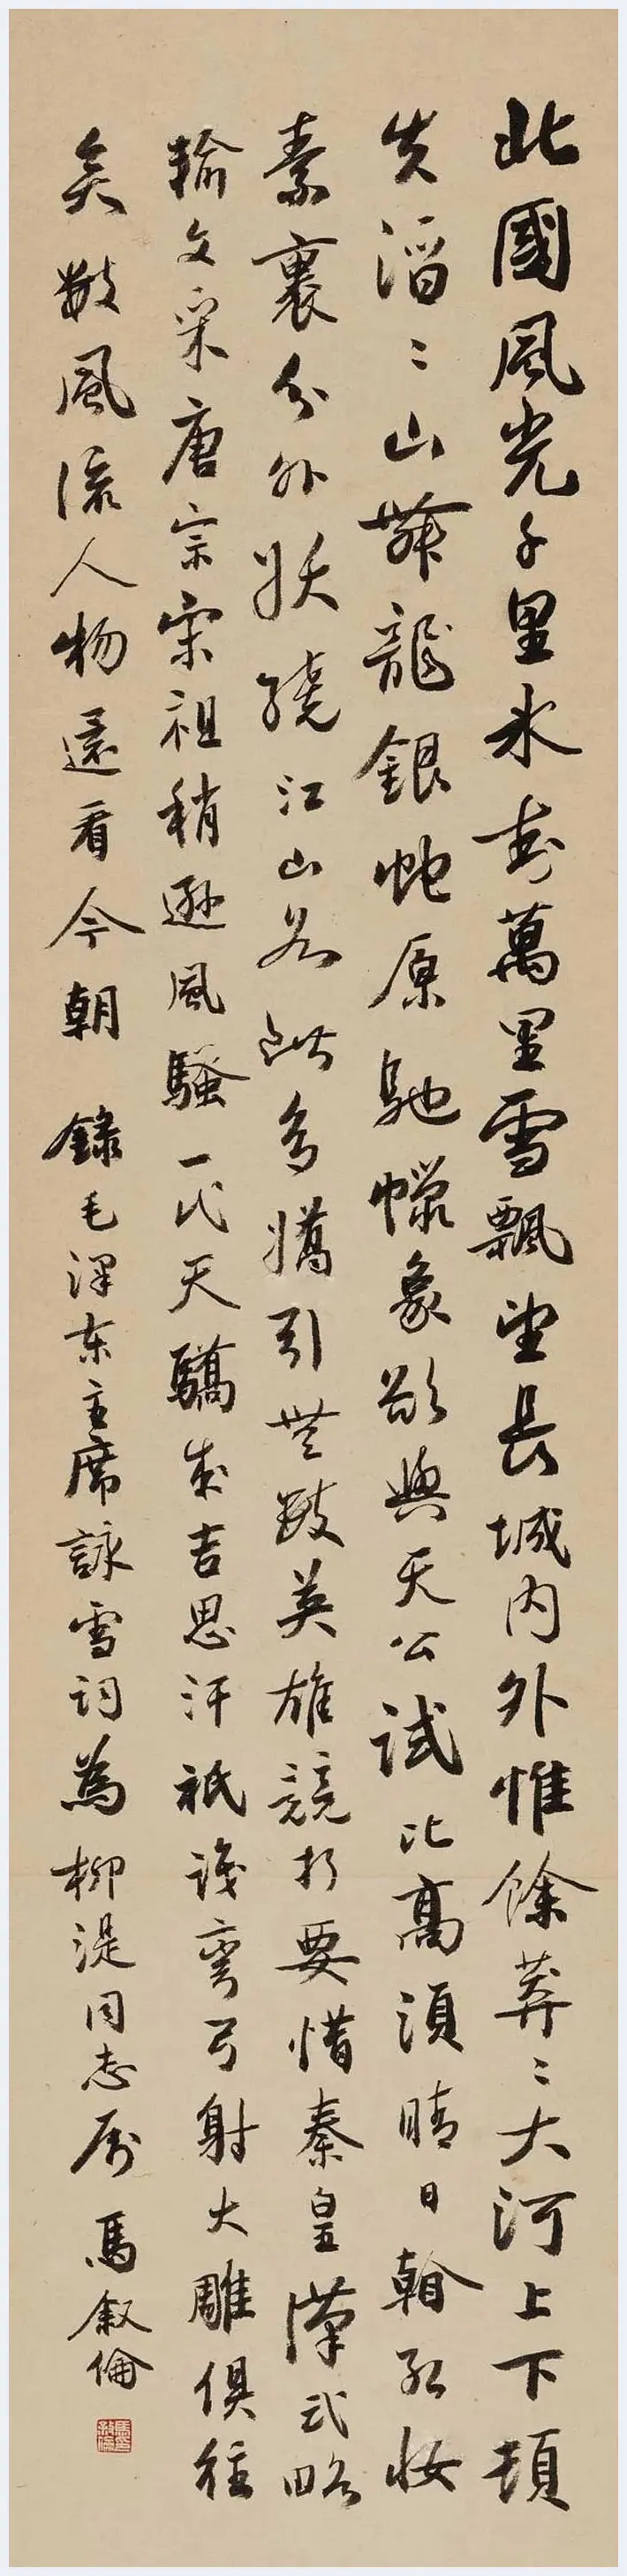 北國風光千里冰封萬里雪飄望長城內外惟餘莽〻大河上下頓
失滔〻山舞龍銀蛇原馳蠟象欲與天公試比高須晴日翰紅妝
素裹分外妖繞江山如此多嬌引無數英雄競折要惜秦皇漢武略
輸文采唐宗宋祖稍遜風騷一代天驕成吉思汗祇識彎弓射大雕俱往
矣數風流人物還看今朝 錄毛澤東主席詠雪詞為柳湜同志屬 馬叙倫